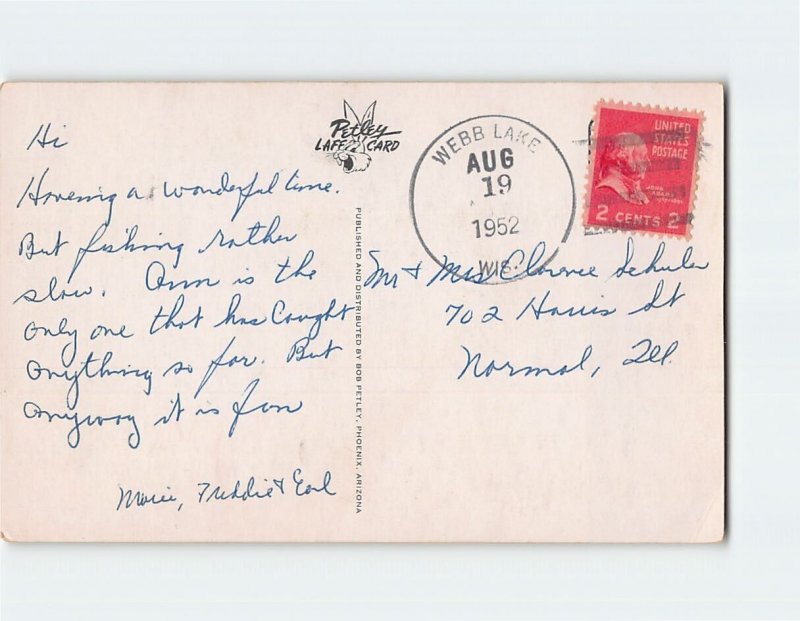 Hi
Havening a wonderful time.
But fishing rather
slow. Ann is the
only one that has Caught
anything so far. But
anyway it is fun
Marie, Freddie & Earl
Petley
LAFF CARD
PUBLISHED AND DISTRIBUTED BY BOB PETLEY, PHOENIX, ARIZONA
WEBB LAKE
AUG
19
1952
WIS.
UNITED
STATES
POSTAGE
JOHN
ADAMS
2 CENTS 2
Mr & Mrs Clarence Schuler
702 Harris St
Normal, Ill.